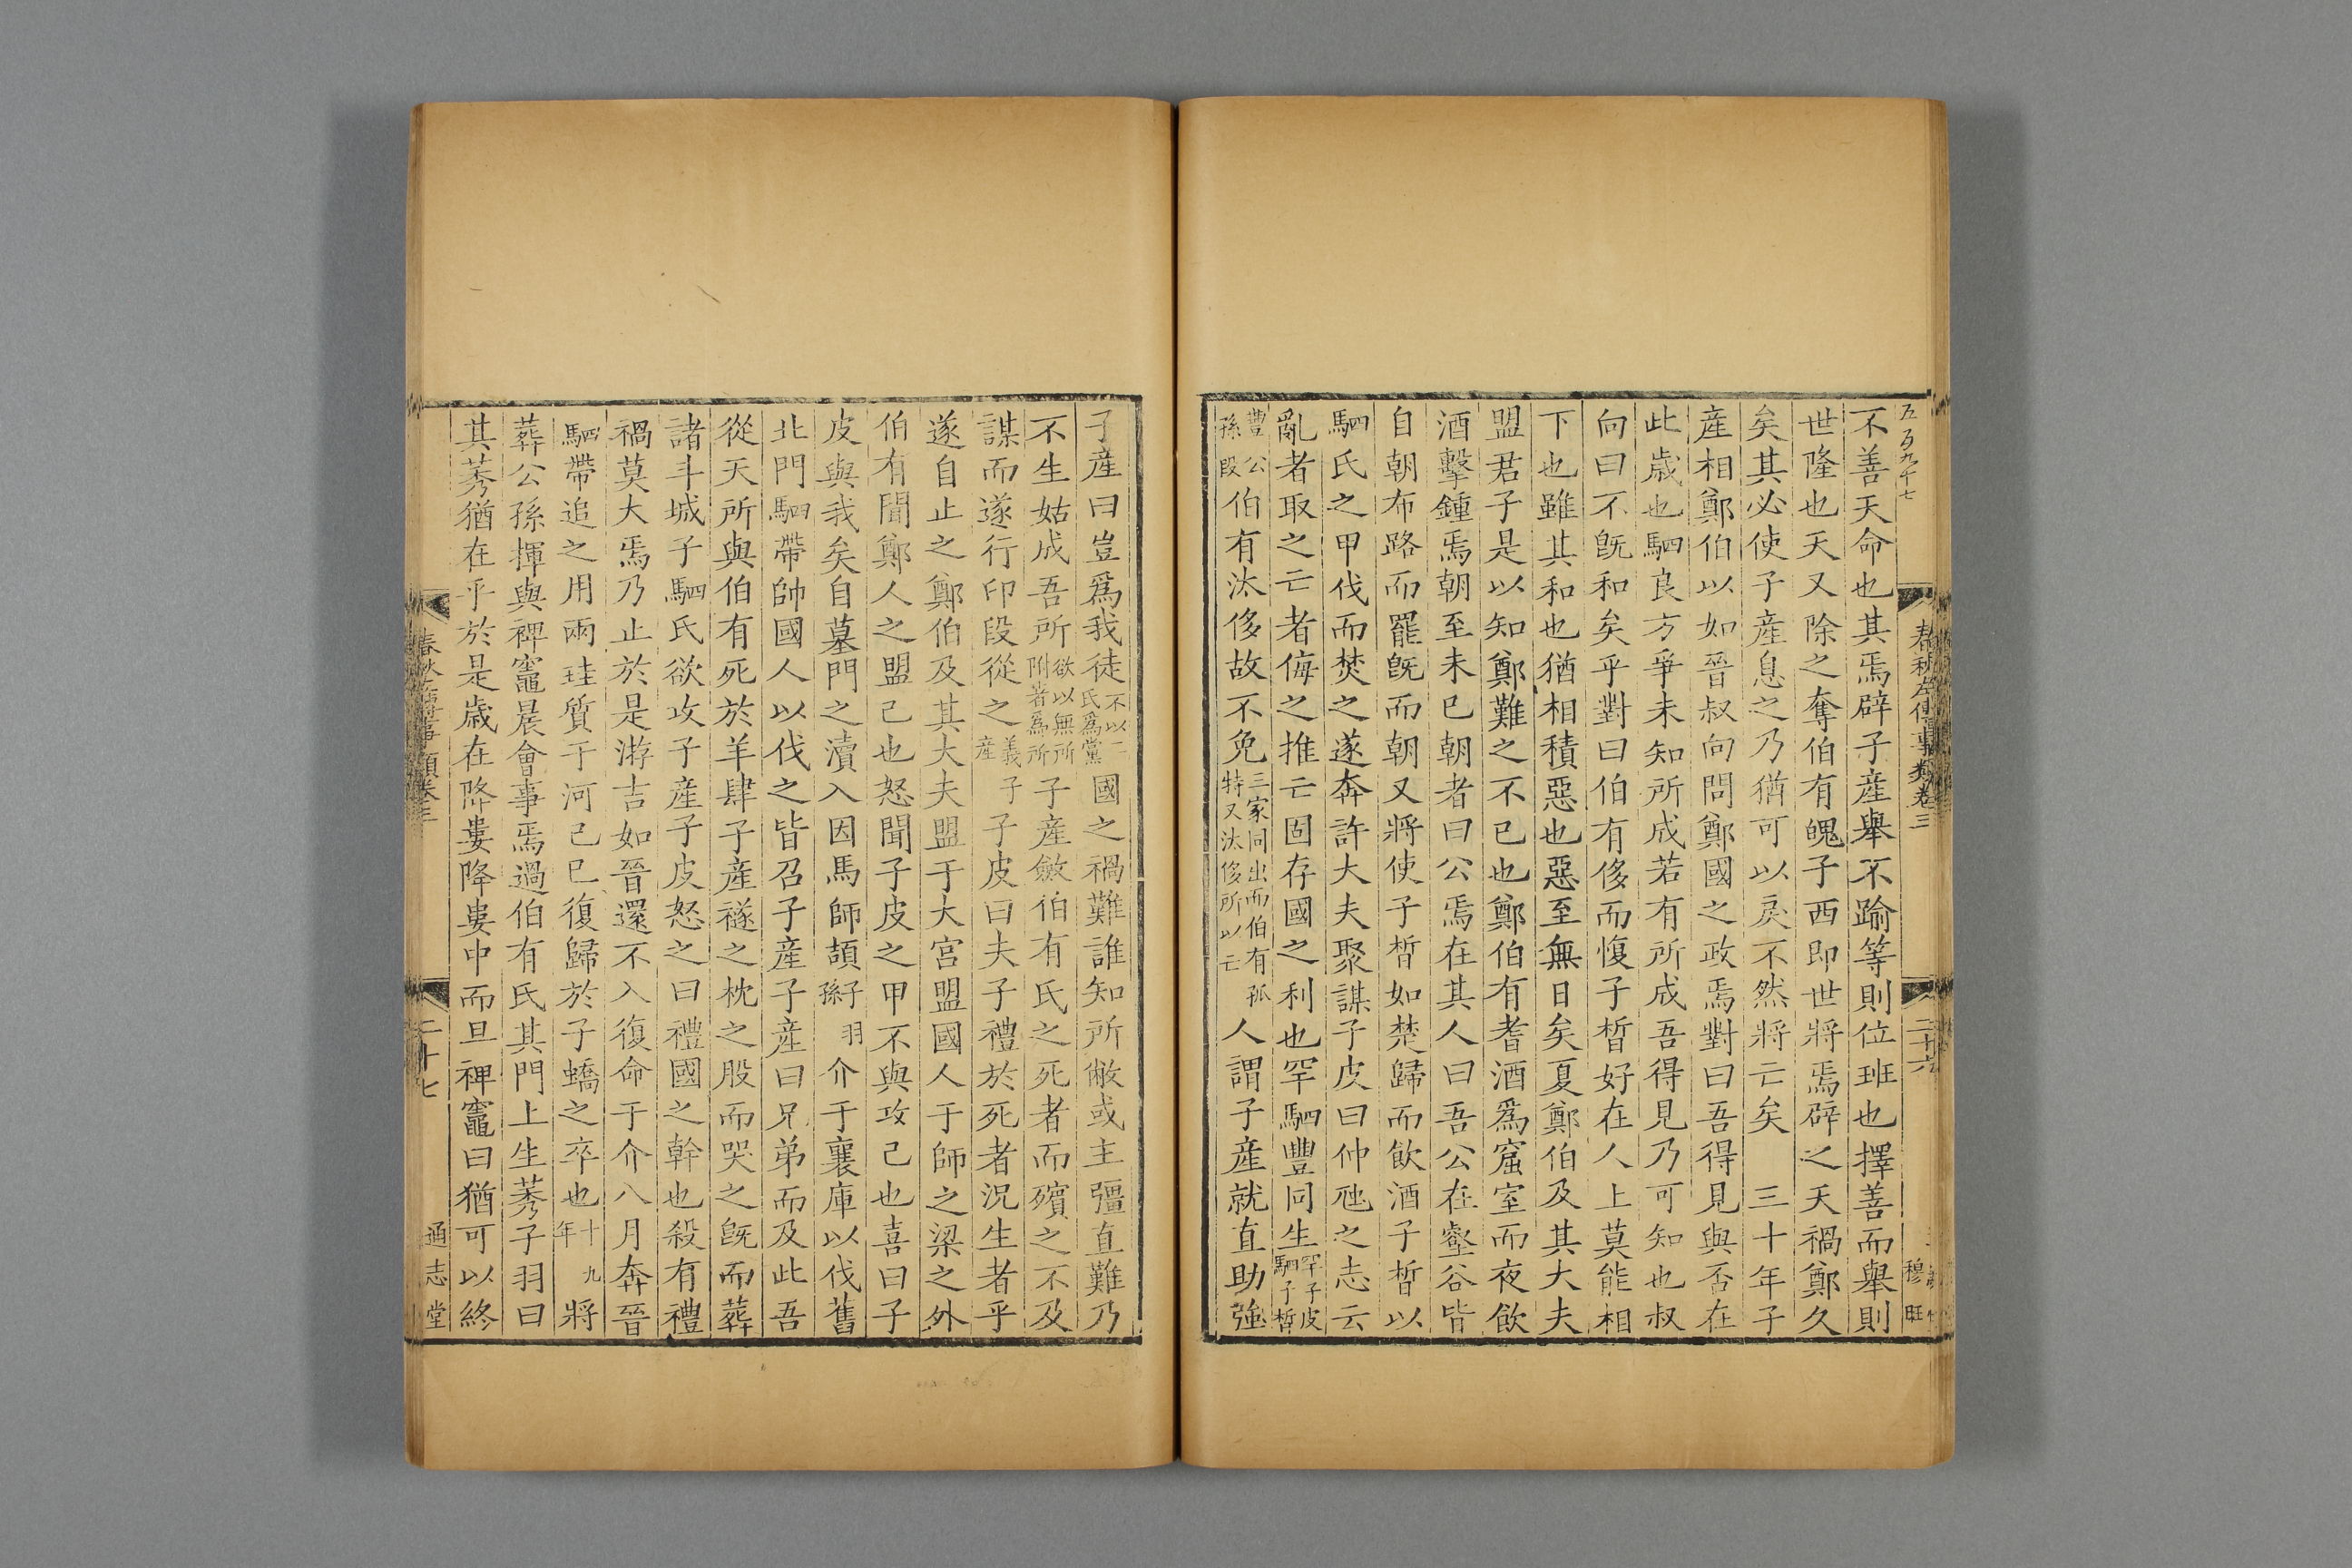 五百九十七
春秋左傳事類卷三
二十六
穆旺
不善天命也其焉辟子產舉不踰等則位班也擇善而舉則
世隆也天又除之奪伯有魄子西即世將焉辟之天禍鄭久
矣其必使子產息之乃猶可以戾不然將亡矣　三十年子
產相鄭伯以如晉叔向問鄭國之政焉對曰吾得見與否在
此歲也駟良方爭未知所成若有所成吾得見乃可知也叔
向曰不旣和矣乎對曰伯有侈而愎子晳好在人上莫能相
下也雖其和也猶相積惡也惡至無日矣夏鄭伯及其大夫
盟君子是以知鄭難之不已也鄭伯有耆酒爲窟室而夜飲
酒擊鍾焉朝至未已朝者曰公焉在其人曰吾公在壑谷皆
自朝布路而罷旣而朝又將使子晳如楚歸而飲酒子晳以
駟氏之甲伐而焚之遂奔許大夫聚謀子皮曰仲虺之志云
亂者取之亡者侮之推亡固存國之利也罕駟豐同生罕子皮駟子晳
豐公孫段伯有汰侈故不免三家同出而伯有孤特又汰侈所以亡人謂子產就直助強
子產曰豈爲我徒不以二氏爲黨國之禍難誰知所敝或主彊直難乃
不生姑成吾所欲以無所附著爲所子產斂伯有氏之死者而殯之不及
謀而遂行印段從之義子產子皮曰夫子禮於死者況生者乎
遂自止之鄭伯及其大夫盟于大宮盟國人于師之梁之外
伯有聞鄭人之盟己也怒聞子皮之甲不與攻己也喜曰子
皮與我矣自墓門之瀆入因馬師頡子羽孫介于襄庫以伐舊
北門駟帶帥國人以伐之皆召子產子產曰兄弟而及此吾
從天所與伯有死於羊肆子產襚之枕之股而哭之旣而葬
諸斗城子駟氏欲攻子產子皮怒之曰禮國之幹也殺有禮
禍莫大焉乃止於是游吉如晉還不入復命于介八月奔晉
駟帶追之用兩珪質于河己巳復歸於子蟜之卒也十九年將
葬公孫揮與裨竈晨會事焉過伯有氏其門上生莠子羽曰
其莠猶在乎於是歲在降婁降婁中而旦裨竈曰猶可以終
二十七
通志堂